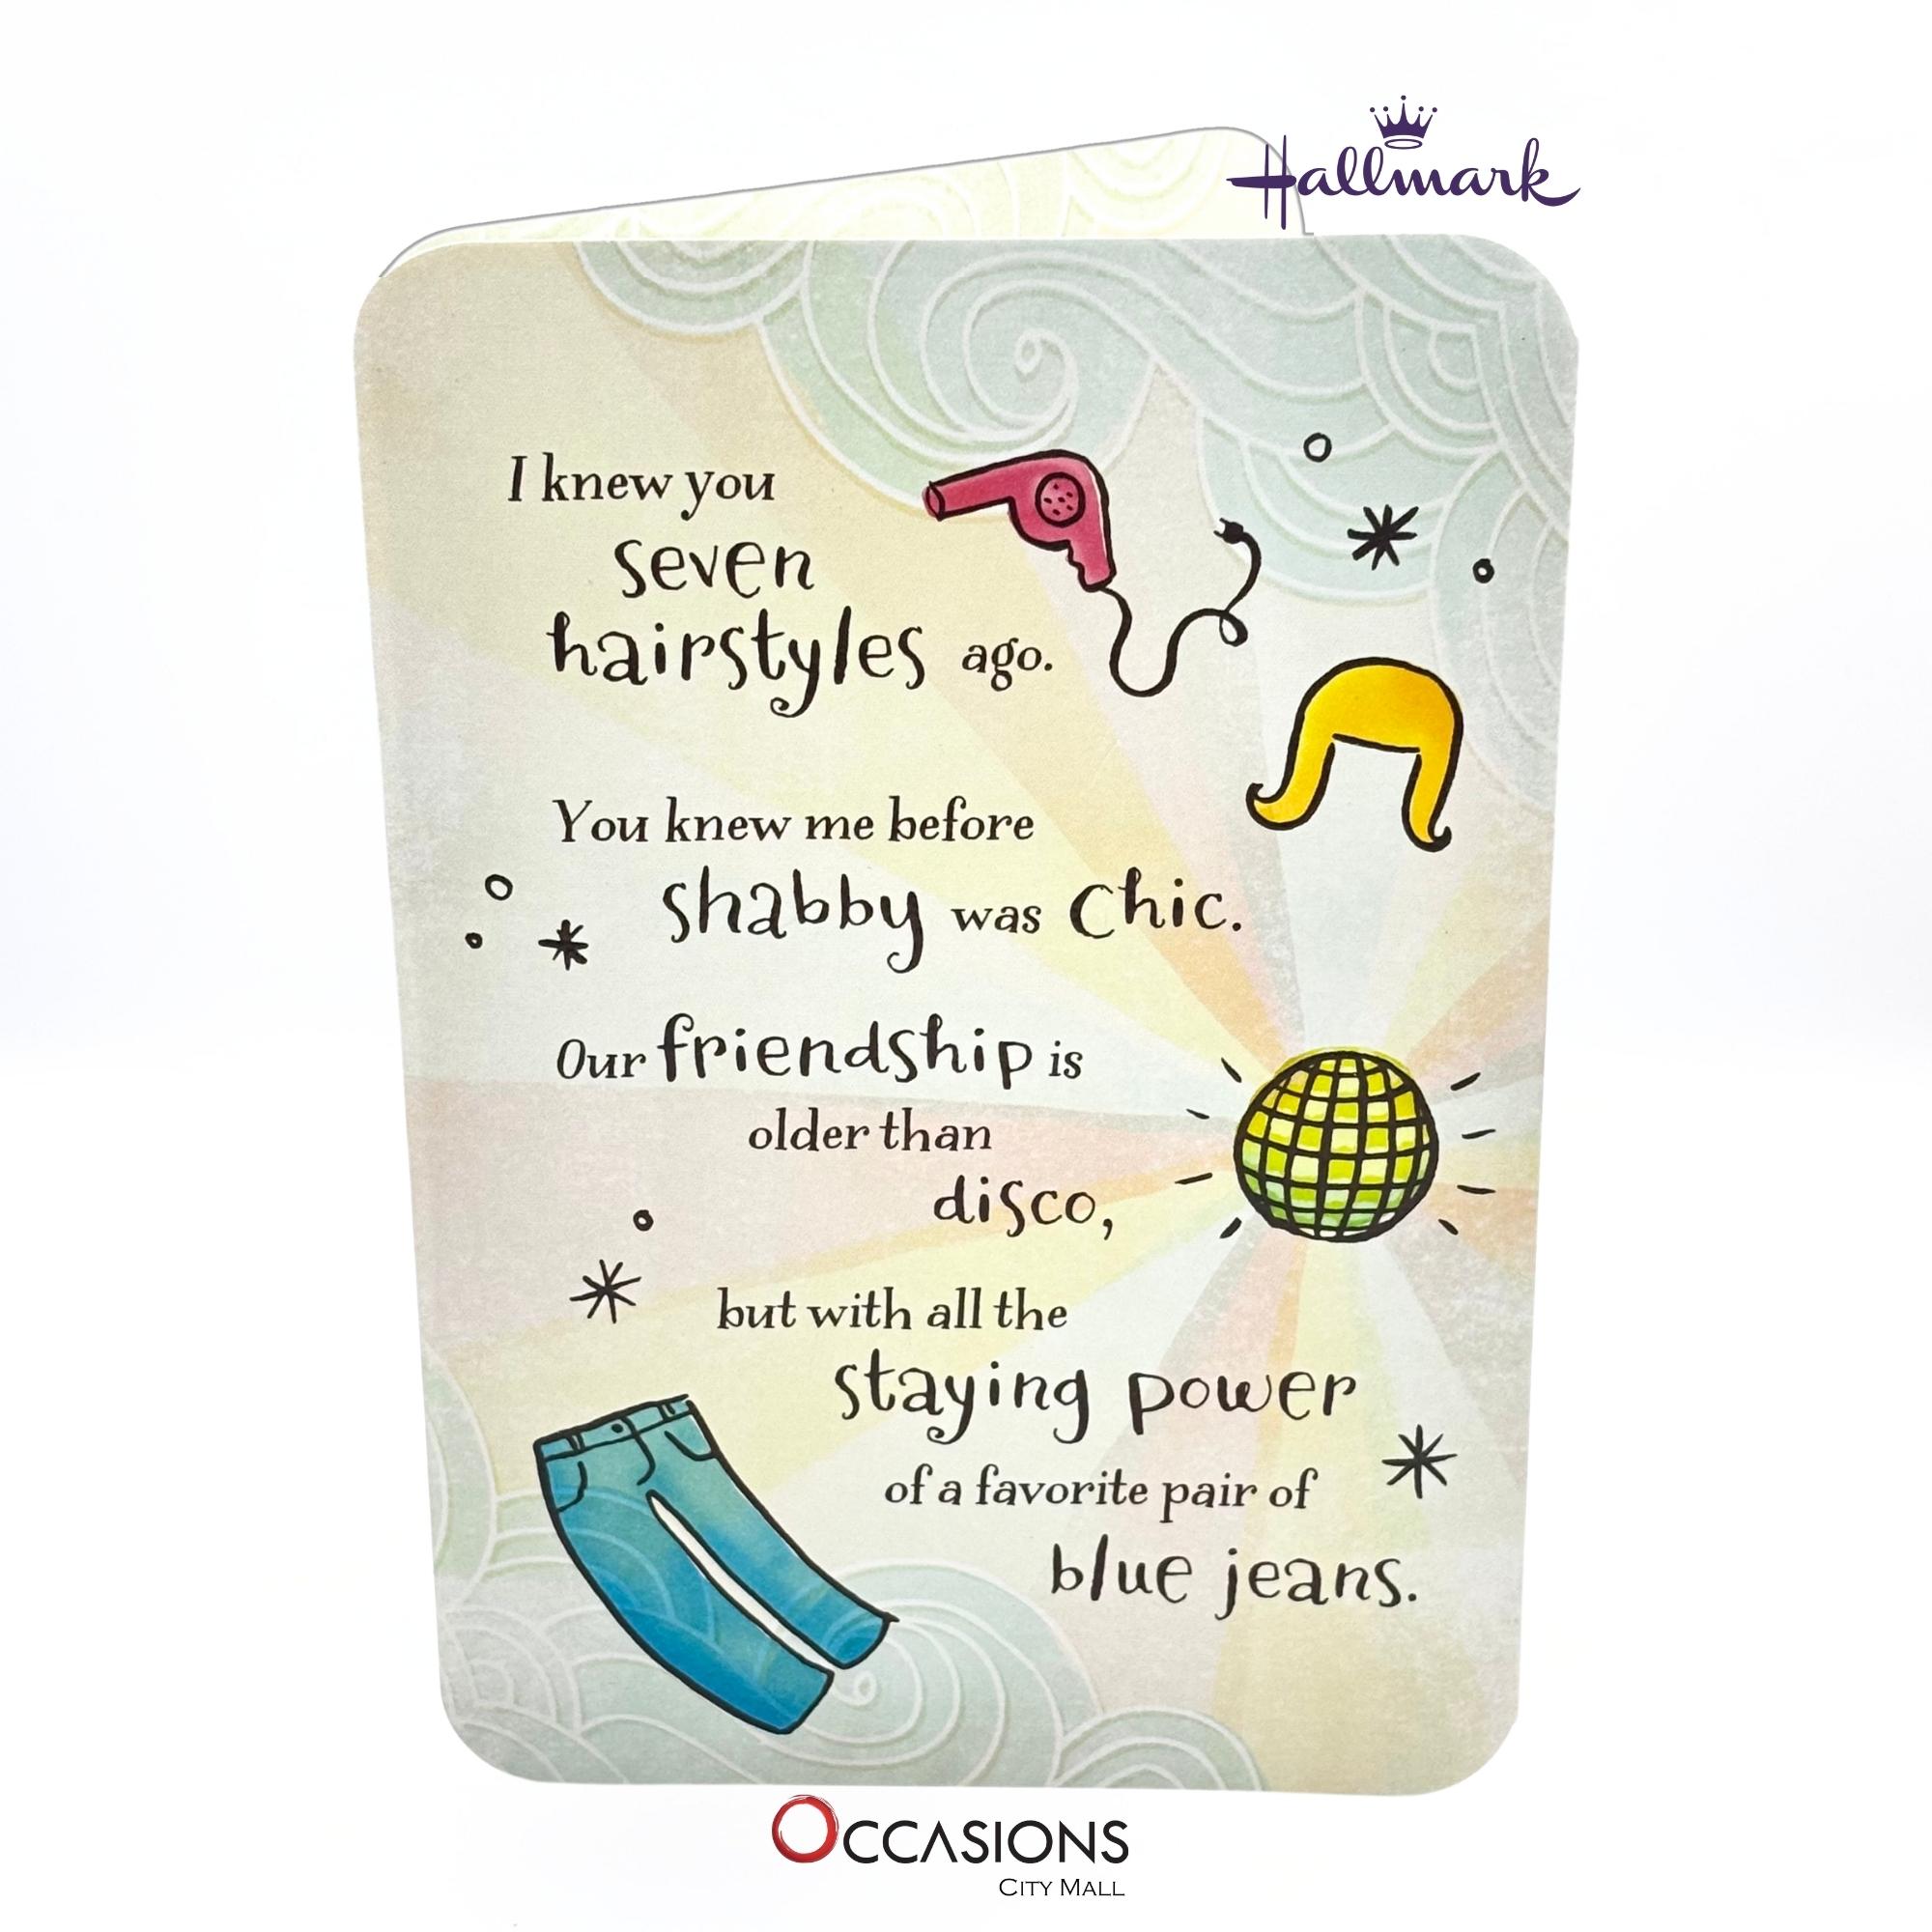 Hallmark
I knew you
seven
hairstyles ago.
You knew me before
shabby was chic.
Our friendship is
older than
disco,
but with all the
staying power
of a favorite pair of
blue jeans.
OCCASIONS
CITY MALL